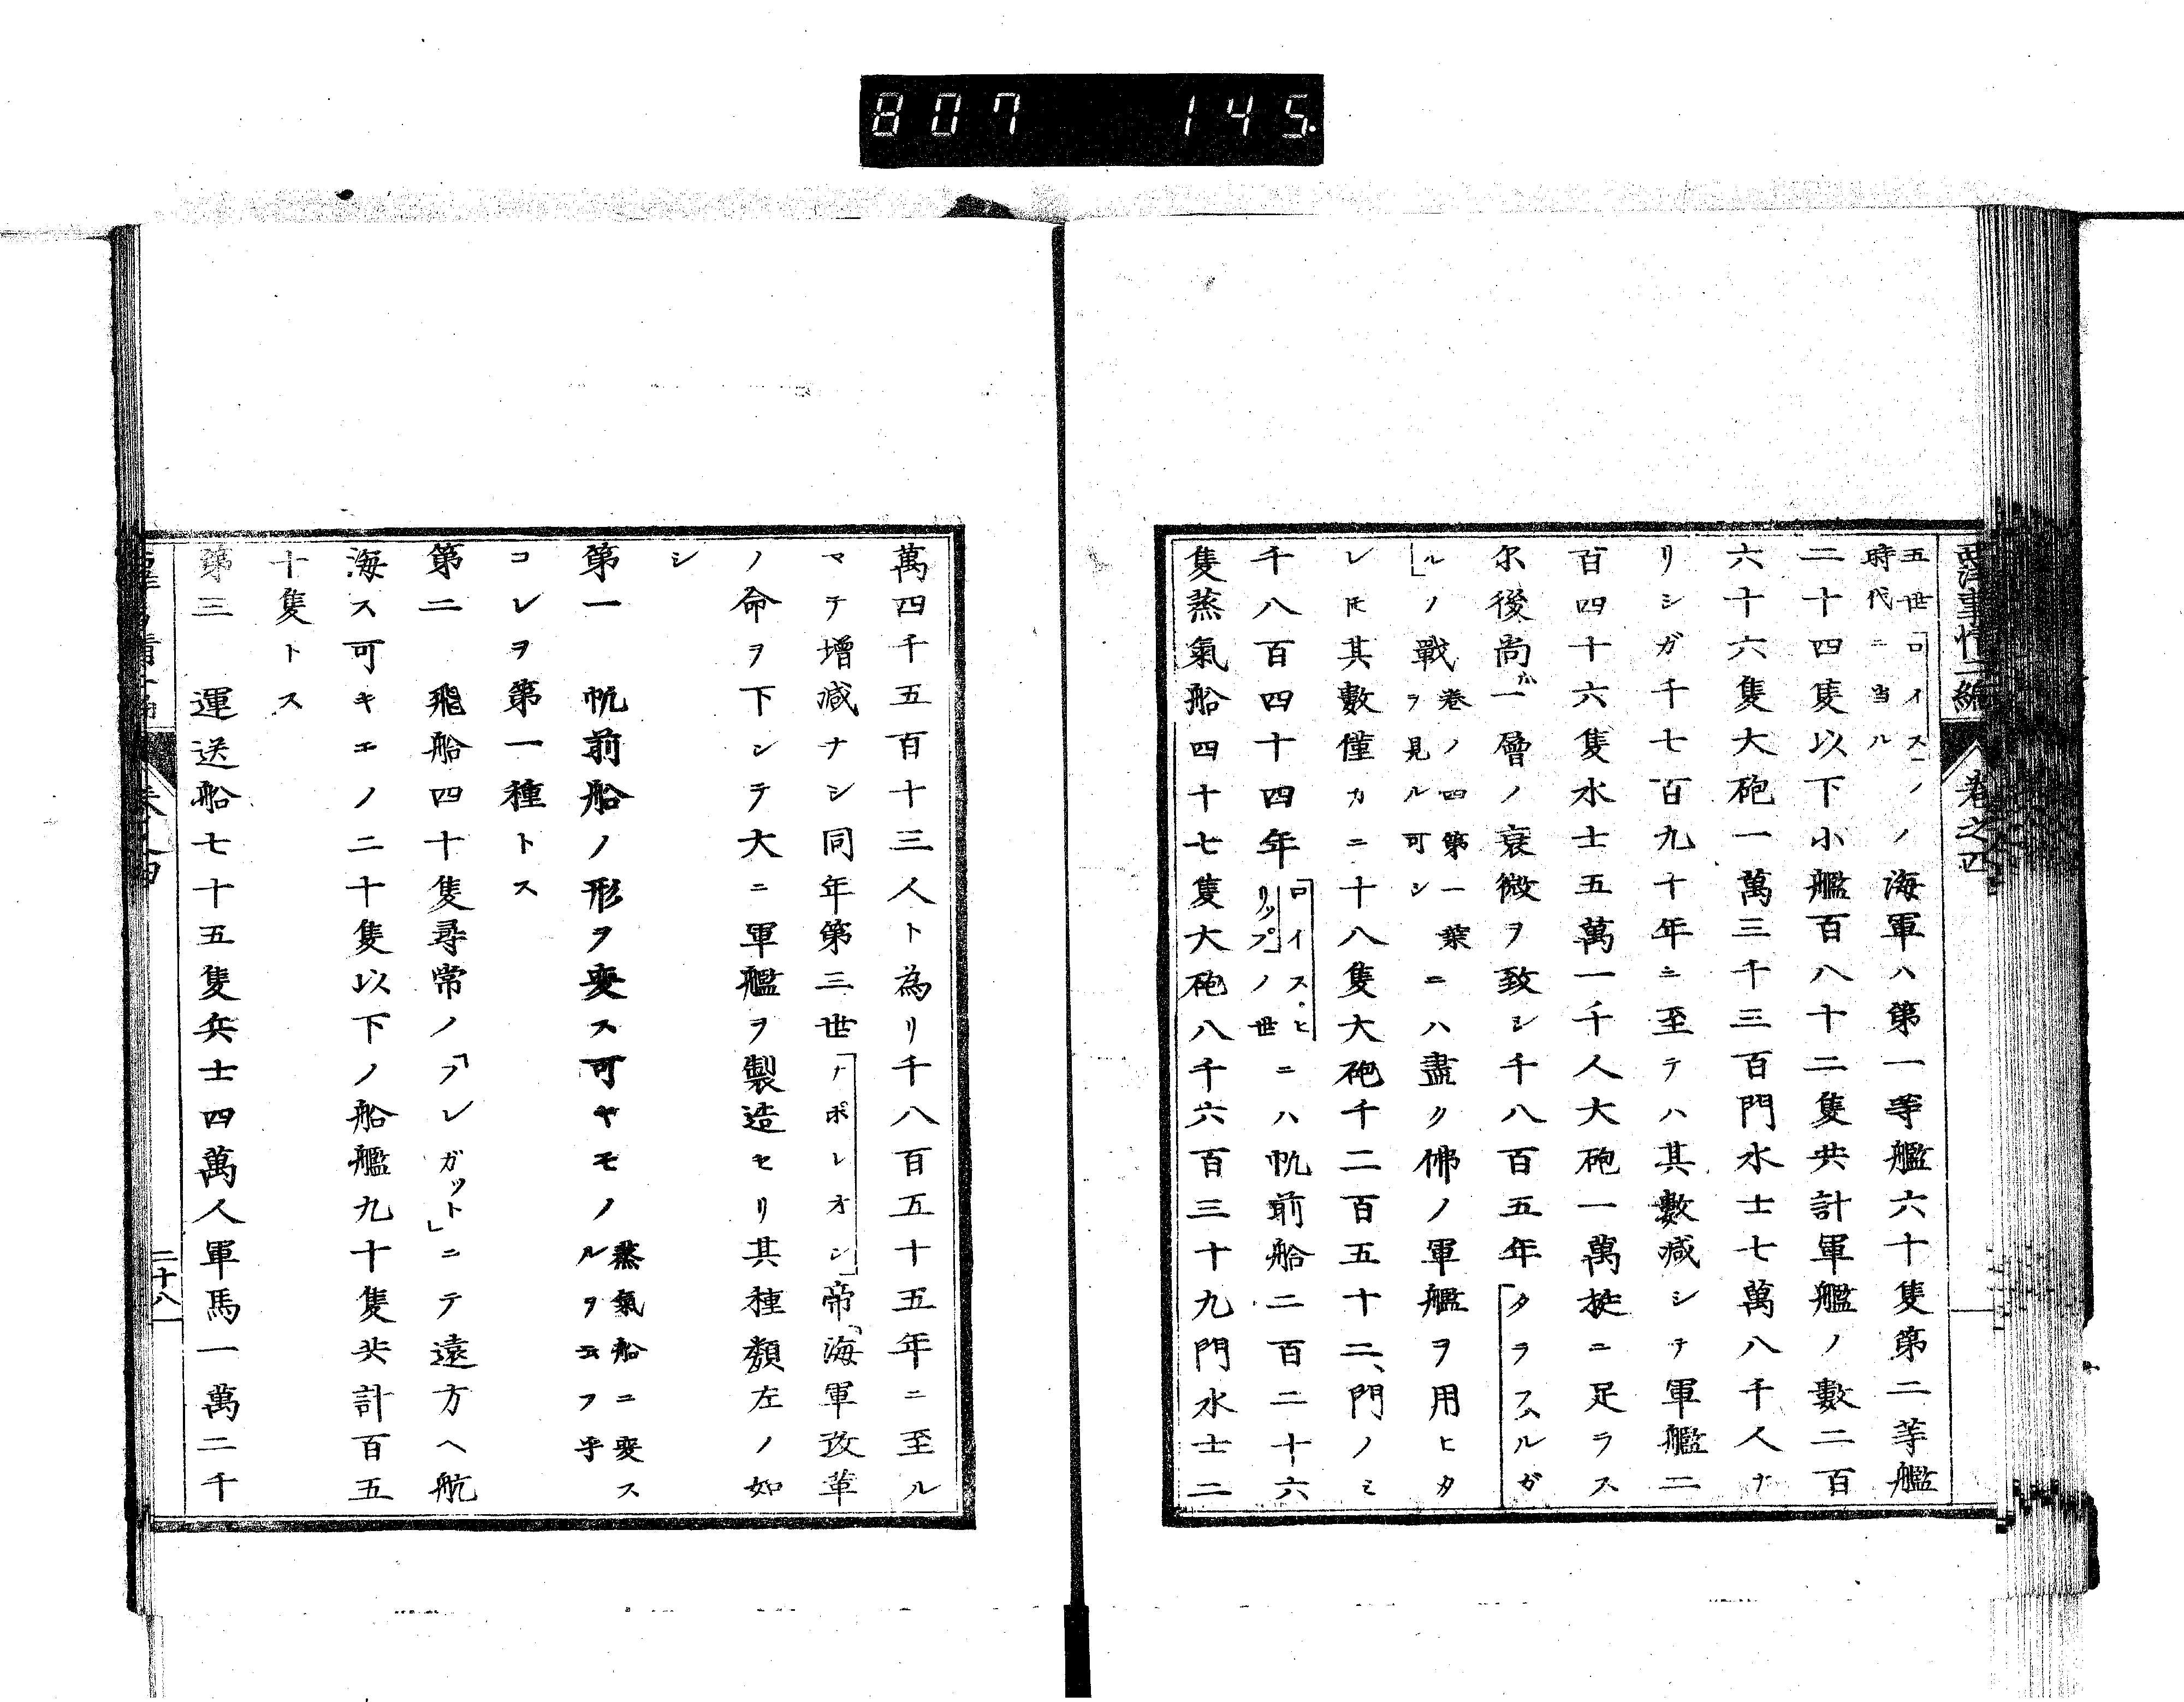 807 145
西洋事情二編 卷之四
五世「ロイス」ノノ海軍ハ第一等艦六十隻第二等艦
時代ニ当ル
二十四隻以下小艦百八十二隻共計軍艦ノ數二百
六十六隻大砲一萬三千三百門水士七萬八千人ナ
リシガ千七百九十年ニ至テハ其數減シテ軍艦二
百四十六隻水士五萬一千人大砲一萬挺ニ足ラス
尔後尚ホ一層ノ衰微ヲ致シ千八百五年「タラフハルガ
ル」ノ戰卷ノ四第一葉ヲ見ル可シニハ盡ク佛ノ軍艦ヲ用ヒタ
レ𪜈其數僅カニ十八隻大砲千二百五十二門ノミ
千八百四十四年「ロイス・ヒリップ」ノ世ニハ帆前船二百二十六
隻蒸氣船四十七隻大砲八千六百三十九門水士二
萬四千五百十三人ト為リ千八百五十五年ニ至ル
マテ增減ナシ同年第三世「ナポレオン」帝海軍改革
ノ命ヲ下シテ大ニ軍艦ヲ製造セリ其種類左ノ如
シ
第一 帆前船ノ形ヲ変ス可キモノ蒸氣船ニ変スルヲ云フ乎
コレヲ第一種トス
第二 飛船四十隻尋常ノ「フレガット」ニテ遠方ヘ航
海ス可キモノ二十隻以下ノ船艦九十隻共計百五
十隻トス
第三 運送船七十五隻兵士四萬人軍馬一萬二千
二十八